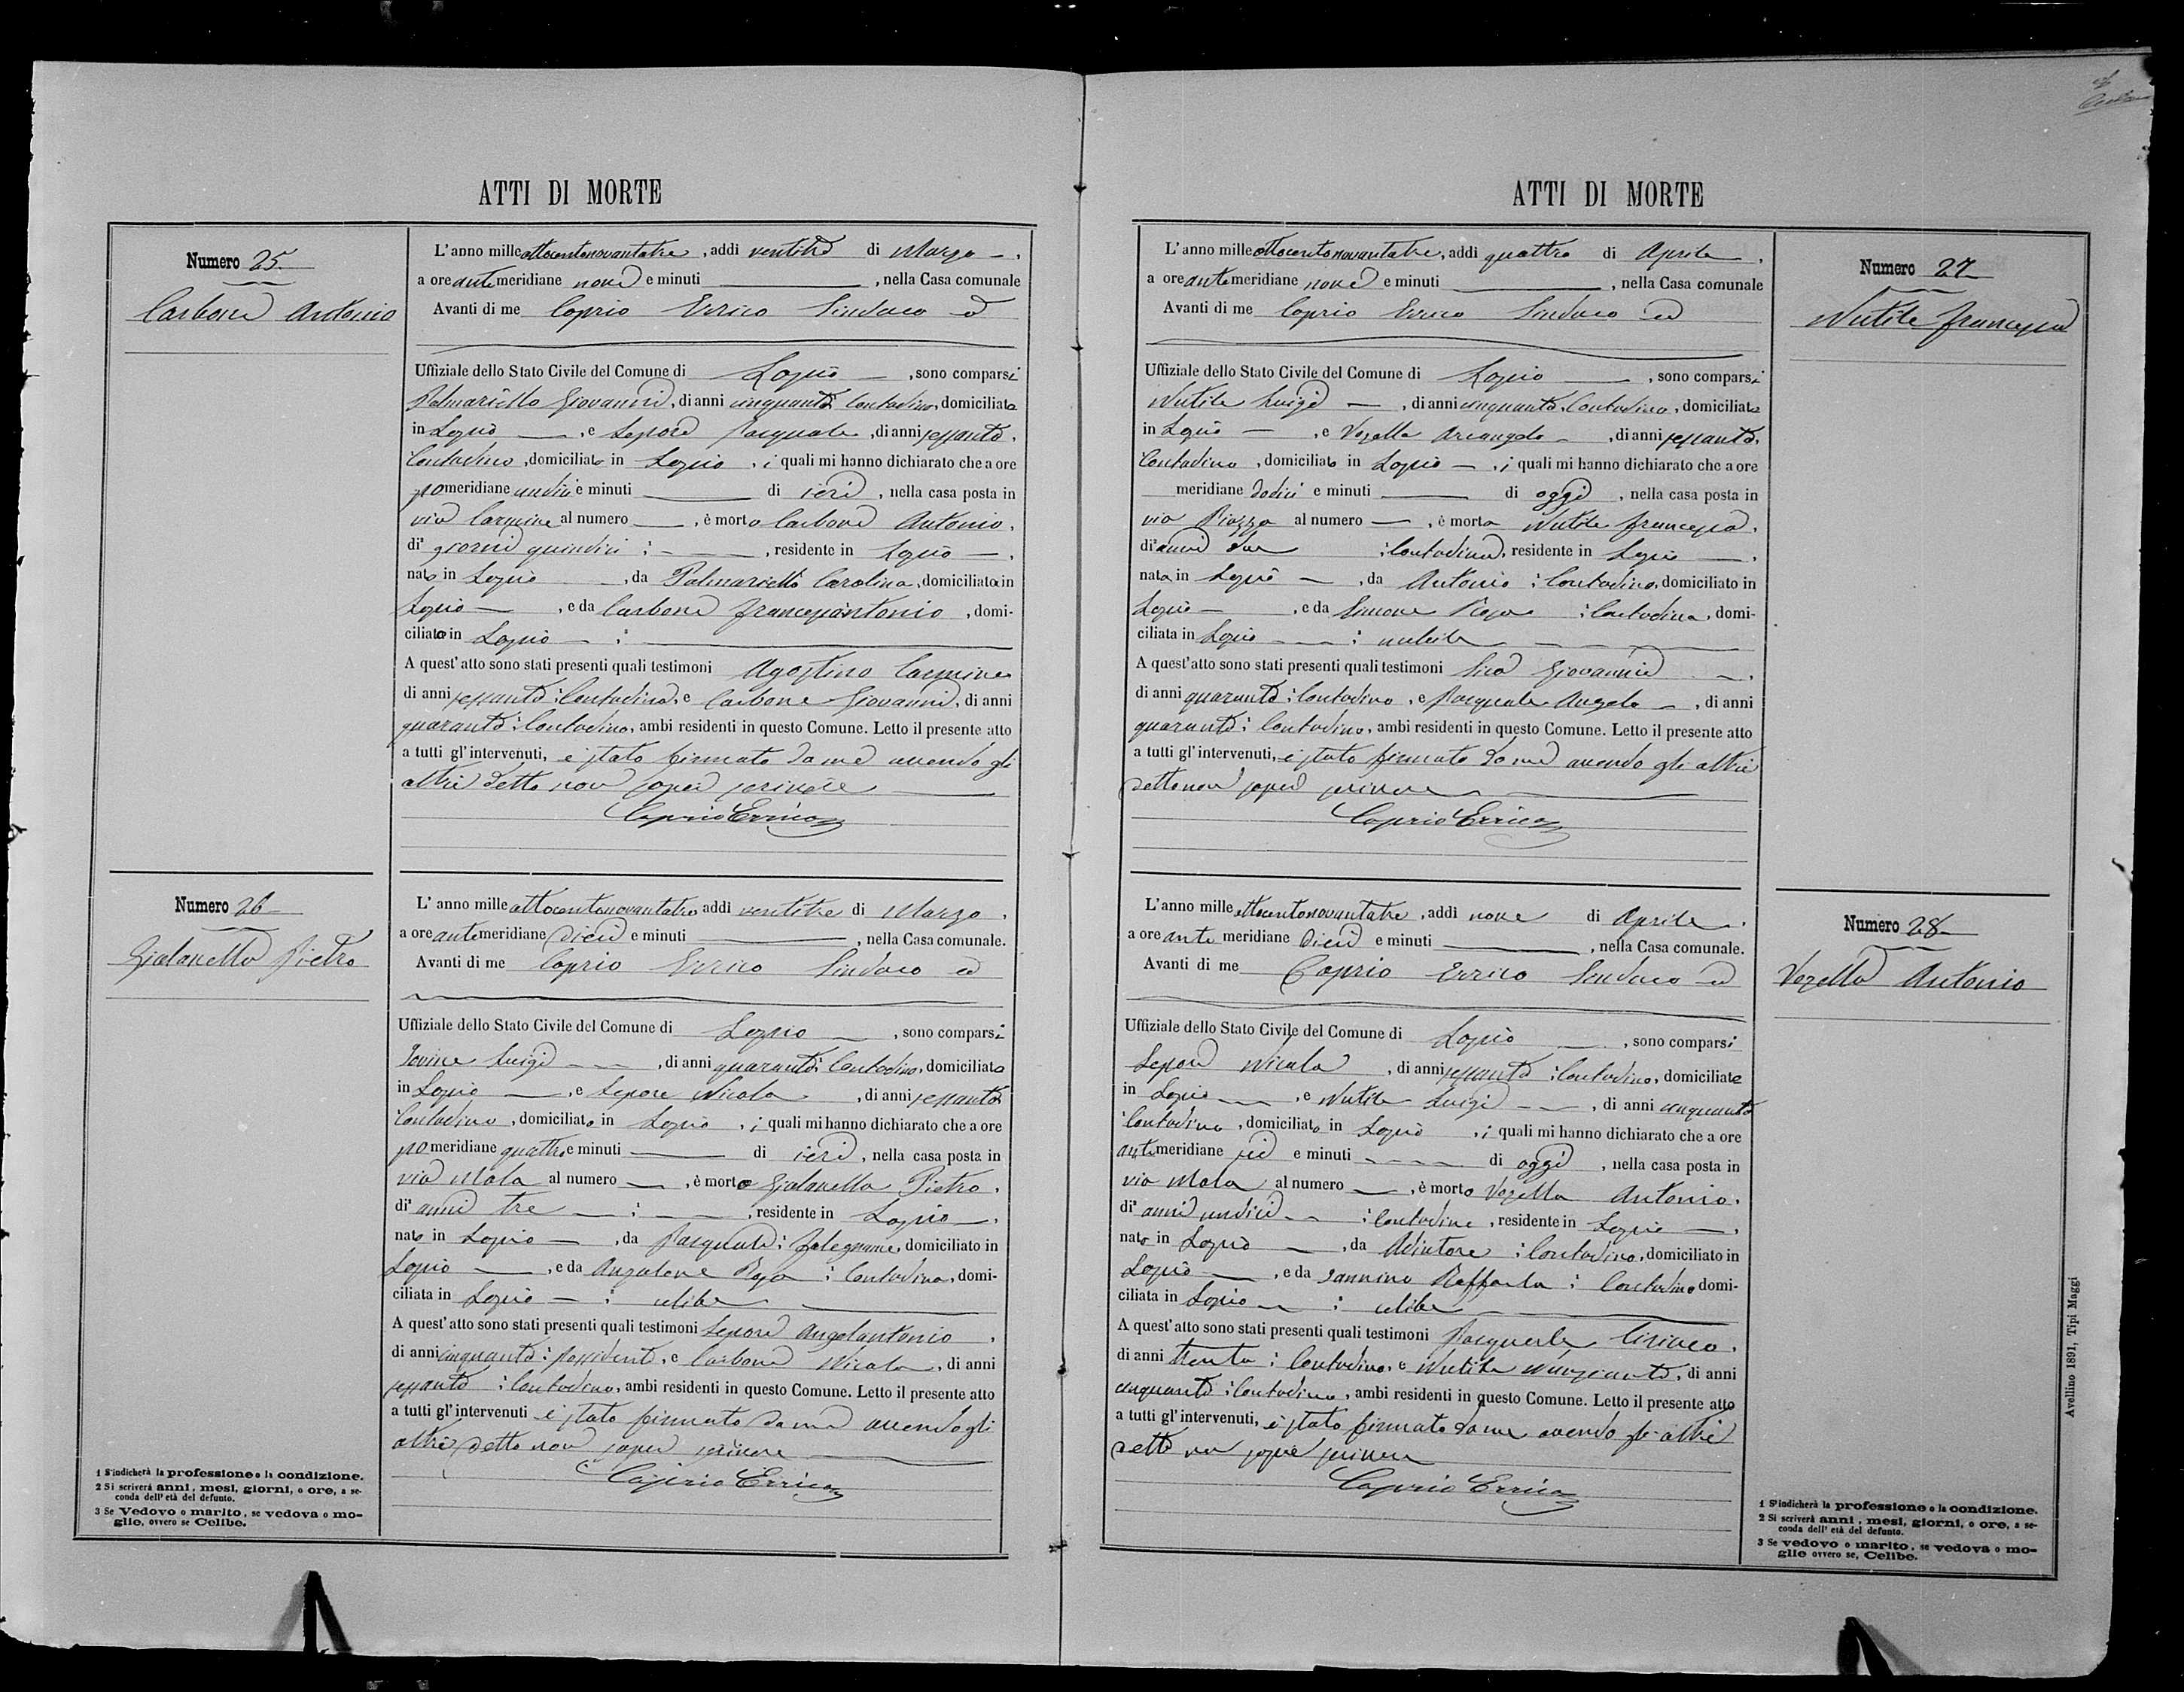 ATTI DI MORTE
Numero 25
Carbone Antonio
L'anno mille ottocentonovantatre, addì ventitre di Marzo
a ore antemeridiane nove e minuti, nella Casa comunale
Avanti di me Caprio Errico Sindaco ed
Uffiziale dello Stato Civile del Comune di Lapio, sono comparsi
Palmariello Giovanni, di anni cinquanta, Contadino, domiciliato
in Lapio, e Lepore Pasquale, di anni sessanta,
Contadino, domiciliato in Lapio, i quali mi hanno dichiarato che a ore
pomeridiane undici e minuti di ieri, nella casa posta in
via Carmine al numero, è morto Carbone Antonio,
di giorni quindici :, residente in Lapio,
nato in Lapio, da Palmariello Carolina, domiciliata in
Lapio, e da Carbone Francescantonio, domi-
ciliato in Lapio :
A quest'atto sono stati presenti quali testimoni Agostino Carmine
di anni sessanta : Contadino, e Carbone Giovanni, di anni
quaranta : Contadino, ambi residenti in questo Comune. Letto il presente atto
a tutti gl'intervenuti, è stato firmato da me avendo gli
altri detto non saper scrivere
Caprio Errico
Numero 26
Gialanella Pietro
L'anno mille ottocentonovantatre addì ventitre di Marzo,
a ore antemeridiane dieci e minuti, nella Casa comunale.
Avanti di me Caprio Errico Sindaco ed
Uffiziale dello Stato Civile del Comune di Lapio, sono comparsi
Iovine Luigi, di anni quaranta : Contadino, domiciliato
in Lapio, e Lepore Nicola, di anni sessanta
Contadino, domiciliato in Lapio, i quali mi hanno dichiarato che a ore
pomeridiane quattro e minuti di ieri, nella casa posta in
via Mola al numero, è morto Gialanella Pietro,
di anni tre :, residente in Lapio,
nato in Lapio, da Pasquale : falegname, domiciliato in
Lapio, e da Rosa : Contadina, domi-
ciliata in Lapio : celibe
A quest'atto sono stati presenti quali testimoni Lepore Angelantonio,
di anni cinquanta : possidente, e Carbone Nicola, di anni
sessanta : Contadino, ambi residenti in questo Comune. Letto il presente atto
a tutti gl'intervenuti è stato firmato da me avendo gli
altri detto non saper scrivere
Caprio Errico
1 S'indicherà la professione o la condizione.
2 Si scriverà anni, mesi, giorni, o ore, a se-
conda dell'età del defunto.
3 Se Vedovo o marito, se vedova o mo-
glie, ovvero se Celibe.
ATTI DI MORTE
Numero 27
Nutile Francesca
L'anno mille ottocentonovantatre, addì quattro di Aprile,
a ore antemeridiane nove e minuti, nella Casa comunale
Avanti di me Caprio Errico Sindaco ed
Uffiziale dello Stato Civile del Comune di Lapio, sono comparsi
Nutile Luigi, di anni cinquanta, Contadino, domiciliato
in Lapio, e Vozella Arcangelo, di anni sessanta,
Contadino, domiciliato in Lapio, i quali mi hanno dichiarato che a ore
meridiane dodici e minuti di oggi, nella casa posta in
via Piazza al numero, è morta Nutile Francesca,
di anni due : Contadina, residente in Lapio,
nata in Lapio, da Antonio : Contadino, domiciliato in
Lapio, e da Simone Rosa : Contadina, domi-
ciliata in Lapio : nubile
A quest'atto sono stati presenti quali testimoni Sica Giovanni,
di anni quaranta : Contadino, e Pasquale Angelo, di anni
quaranta : Contadino, ambi residenti in questo Comune. Letto il presente atto
a tutti gl'intervenuti, è stato firmato da me avendo gli altri
detto non saper scrivere
Caprio Errico
Numero 28
Vozella Antonio
L'anno mille ottocentonovantatre, addì nove di Aprile,
a ore antemeridiane dieci e minuti, nella Casa comunale.
Avanti di me Caprio Errico Sindaco ed
Uffiziale dello Stato Civile del Comune di Lapio, sono comparsi
Lepore Nicola, di anni sessanta : Contadino, domiciliato
in Lapio, e Nutile Luigi, di anni cinquanta
Contadino, domiciliato in Lapio, i quali mi hanno dichiarato che a ore
antimeridiane sei e minuti di oggi, nella casa posta in
via Mola al numero, è morto Vozella Antonio,
di anni undici : Contadino, residente in Lapio,
nato in Lapio, da : Contadino, domiciliato in
Lapio, e da Iannino Raffaela : Contadina domi-
ciliata in Lapio : celibe
A quest'atto sono stati presenti quali testimoni Pasquale Ciriaco,
di anni trenta : Contadino, e Nutile, di anni
cinquanta : Contadino, ambi residenti in questo Comune. Letto il presente atto
a tutti gl'intervenuti, è stato firmato da me avendo gli altri
detto non saper scrivere
Caprio Errico
1 S'indicherà la professione o la condizione.
2 Si scriverà anni, mesi, giorni, o ore, a se-
conda dell'età del defunto.
3 Se vedovo o marito, se vedova o mo-
glie ovvero se, Celibe.
Avellino 1891, Tipi Maggi